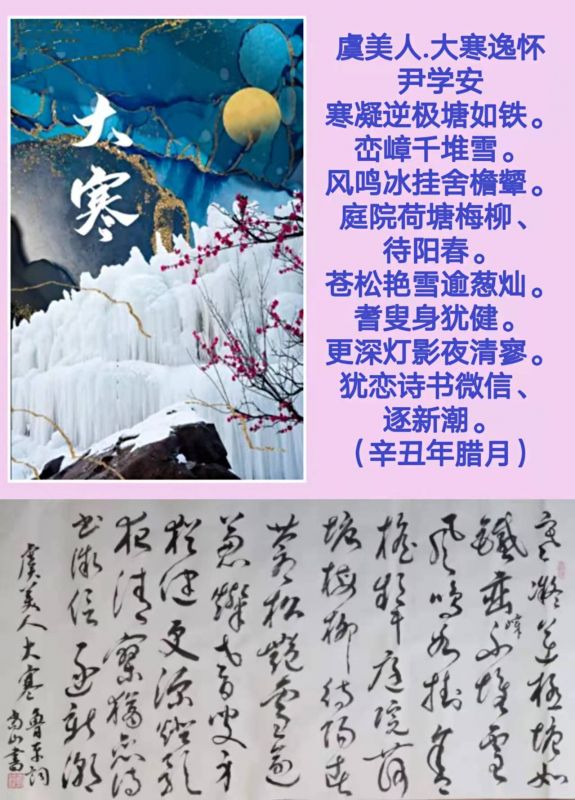 大寒
虞美人.大寒逸怀
尹学安
寒凝逆极塘如铁。
峦嶂千堆雪。
风鸣冰挂舍檐颦。
庭院荷塘梅柳、
待阳春。
苍松艳雪逾葱灿。
耆叟身犹健。
更深灯影夜清寥。
犹恋诗书微信、
逐新潮。
（辛丑年腊月）
寒凝逆极塘如
鐵峦嶂千堆雪
風鳴冰掛舍
檐颦庭院荷
塘梅柳待陽春
蒼松艷雪逾
葱燦耆叟身
犹健更深燈影
夜清寥猶恋詩
书微信逐新潮
虞美人大寒 魯东词
高山書